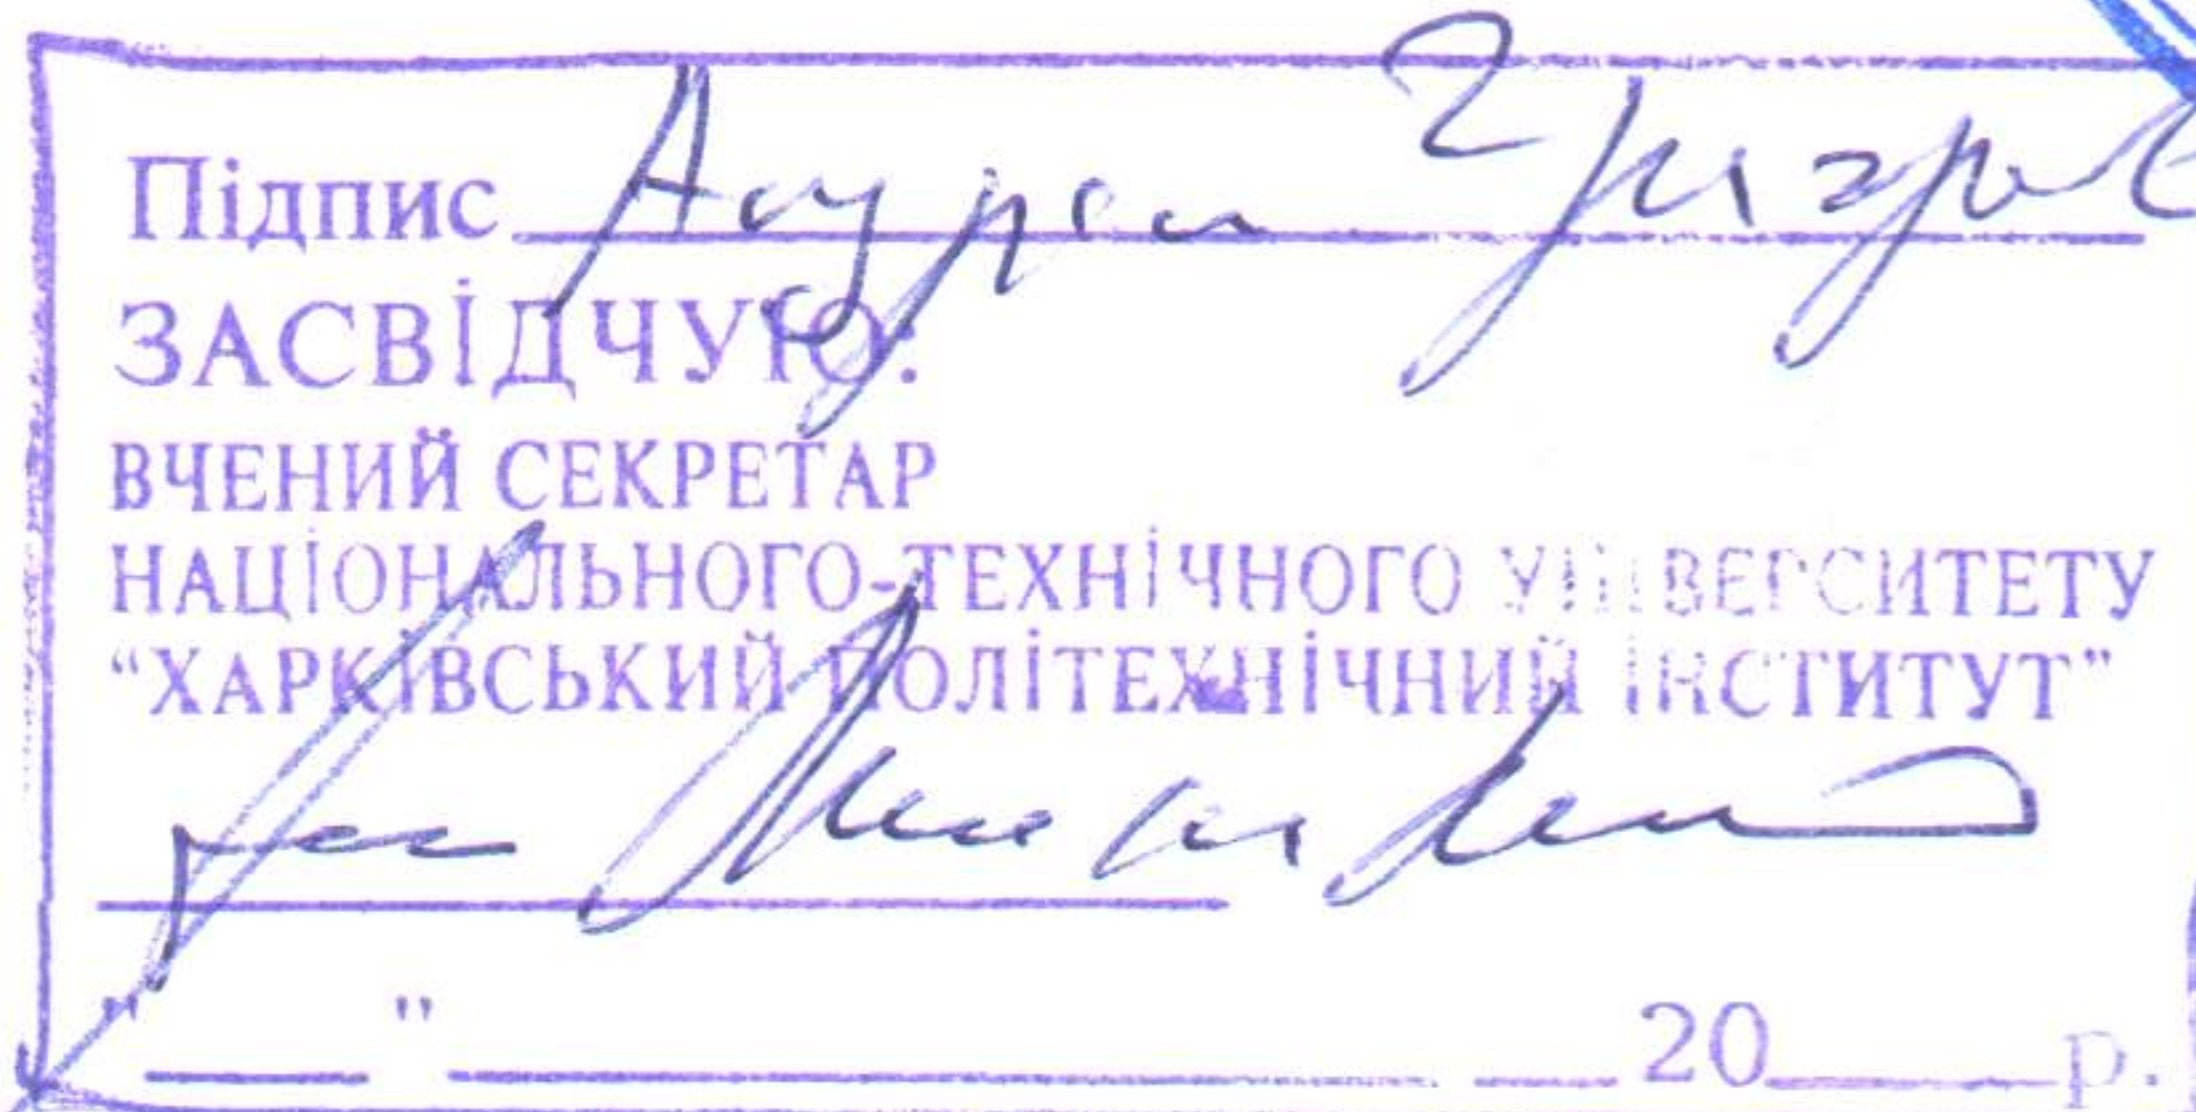 Підпис
ЗАСВІДЧУЮ:
ВЧЕНИЙ СЕКРЕТАР
НАЦІОНАЛЬНОГО-ТЕХНІЧНОГО УНІВЕРСИТЕТУ
“ХАРКІВСЬКИЙ ПОЛІТЕХНІЧНИЙ ІНСТИТУТ”
"___"__________ 20____р.